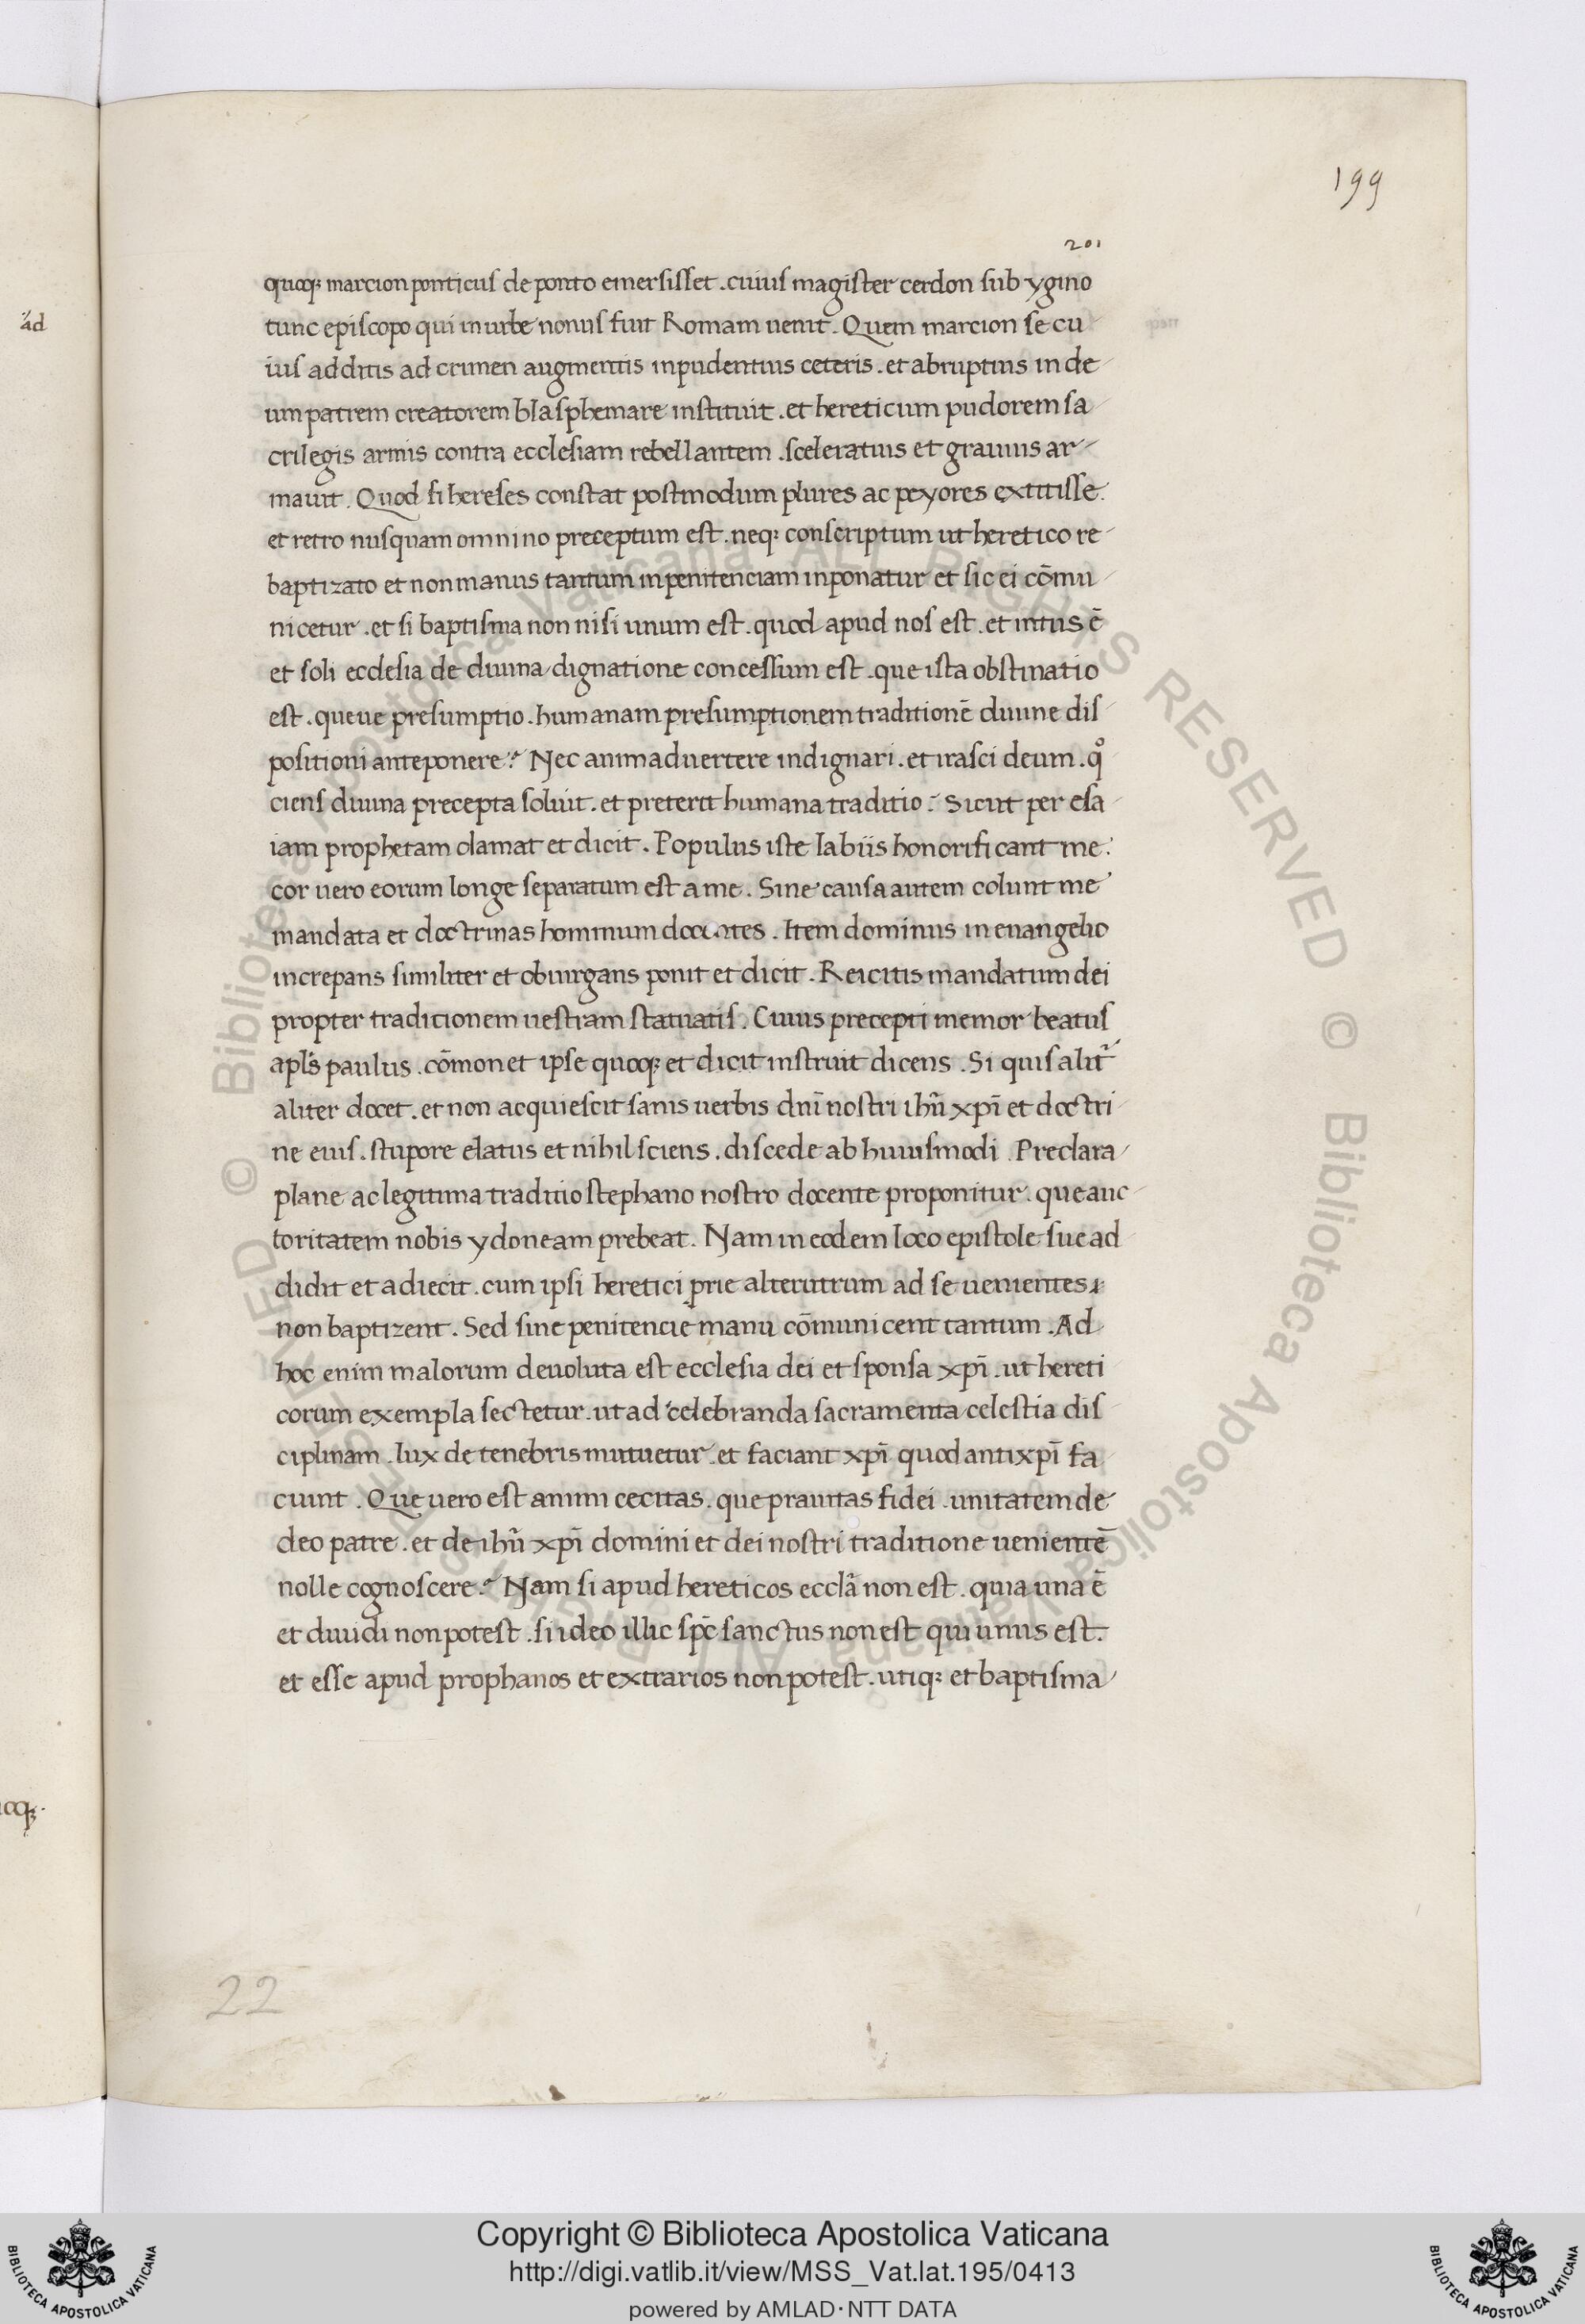 199
201
quoq; marcion ponticus de ponto emersisset . cuius magister cerdon sub ygino
tunc episcopo qui in urbe nonus fuit Romam uenit . Quem marcion se cu
ius additis ad crimen augmentis inpudentius ceteris . et abruptius in de
um patrem creatorem blasphemare instituit . et hereticum pudorem sa
crilegis armis contra ecclesiam rebellantem . sceleratius et grauius ar
mauit . Quod si hereses constat postmodum plures ac peyores extitisse .
et retro nusquam omnino preceptum est . neq; conscriptum ut heretico re
baptizato et non manus tantum in penitenciam inponatur et sic ei cōmu
nicetur . et si baptisma non nisi unum est . quod apud nos est . et intus ē
et soli ecclesia de diuina dignatione concessum est . que ista obstinatio
est . queue presumptio . humanam presumptionem traditionē diuine dis
positioni anteponere ? Nec animaduertere indignari . et irasci deum . qͦ
ciens diuina precepta soluit . et preterit humana traditio : Sicut per esa
iam prophetam clamat et dicit . Populus iste labiis honorificant me :
cor uero eorum longe separatum est a me . Sine causa autem colunt me
mandata et doctrinas hominum docentes . Item dominus in euangelio
increpans similiter et obiurgans ponit et dicit . Reicitis mandatum dei
propter traditionem uestram statuatis . Cuius precepti memor beatus
apl's paulus . cōmonet ipse quoq; et dicit instruit dicens . Si quis alit̄
aliter docet . et non acquiescit sanis uerbis dnī nostri ihū xpī et doctri
ne eius . stupore elatus et nihil sciens . discede ab huiusmodi . Preclara
plane ac legitima traditio stephano nostro docente proponitur . que auc
toritatem nobis ydoneam prebeat . Nam in eodem loco epistole sue ad
didit et adiecit . cum ipsi heretici ꝓprie alterutrum ad se uenientes
non baptizent . Sed sine penitencie manu cōmunicent tantum . Ad
hoc enim malorum deuoluta est ecclesia dei et sponsa xpī . ut hereti
corum exempla sectetur . ut ad celebranda sacramenta celestia dis
ciplinam . lux de tenebris mutuetur . et faciant xpī quod antixpī fa
ciunt . Que uero est animi cecitas . que prauitas fidei . unitatem de
deo patre . et de ihū xpī domini et dei nostri traditione uenientē
nolle cognoscere ? Nam si apud hereticos ecclā non est . quia una ē
et diuidi non potest . si ideo illic spc̄ sanctus non est qui unus est .
et esse apud prophanos et extrarios non potest . utiq; et baptisma
22
ad
Copyright © Biblioteca Apostolica Vaticana
http://digi.vatlib.it/view/MSS_Vat.lat.195/0413
powered by AMLAD·NTT DATA
BIBLIOTECA APOSTOLICA VATICANA
BIBLIOTECA APOSTOLICA VATICANA
© Biblioteca Apostolica Vaticana ALL RIGHTS RESERVED
© Biblioteca Apostolica Vaticana ALL RIGHTS RESERVED